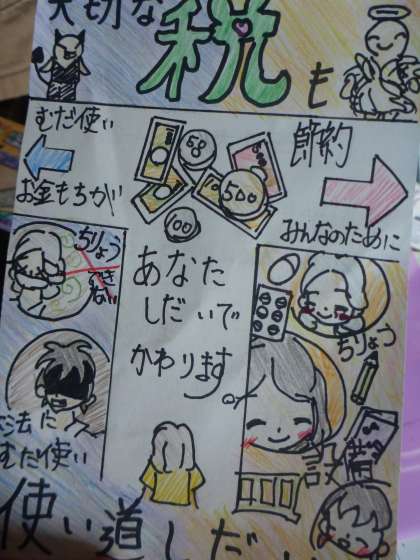 大切な
税も
むだ使い
お金もちが
節約
みんなのために
58
500
100
10
ちりょう
できない
あなた
しだいで
かわります
ちりょう
法に
むだ使い
設備
使い道しだ